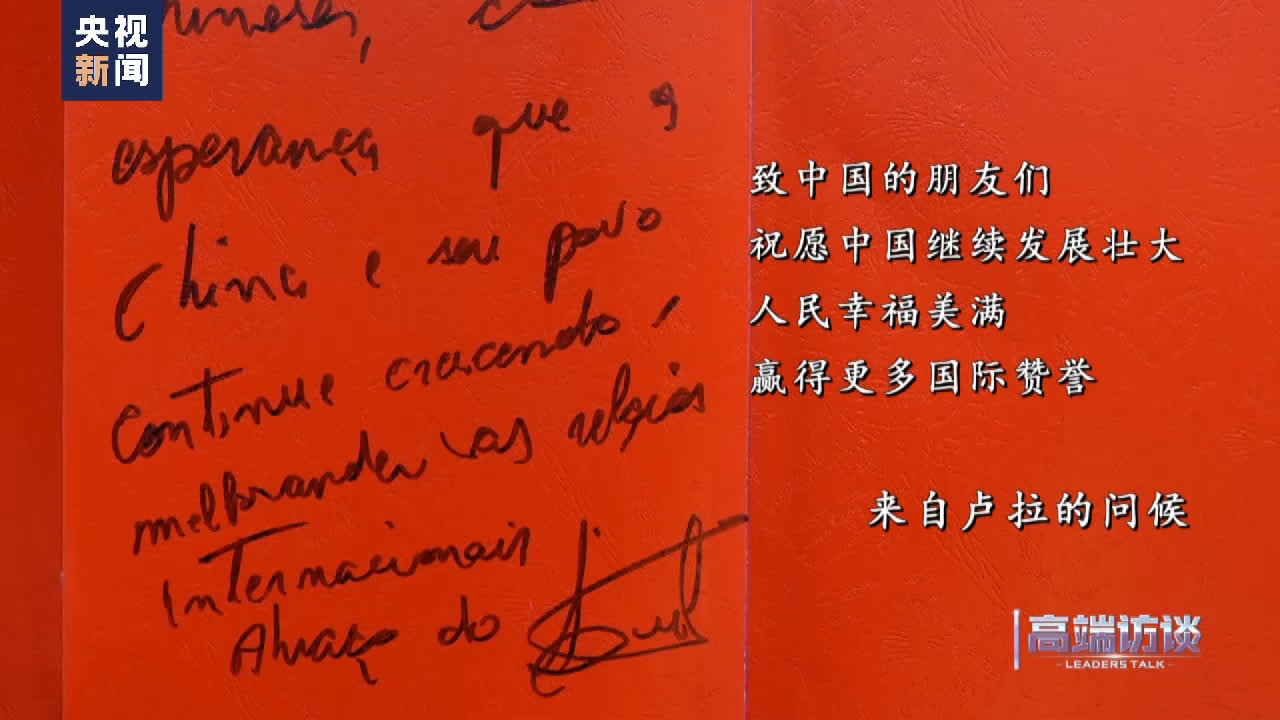 央视
新闻
esperança que a
China e seu povo
continue crescendo,
as relações
internacionais
Abraço do
致中国的朋友们
祝愿中国继续发展壮大
人民幸福美满
赢得更多国际赞誉
来自卢拉的问候
高端访谈
LEADERS TALK